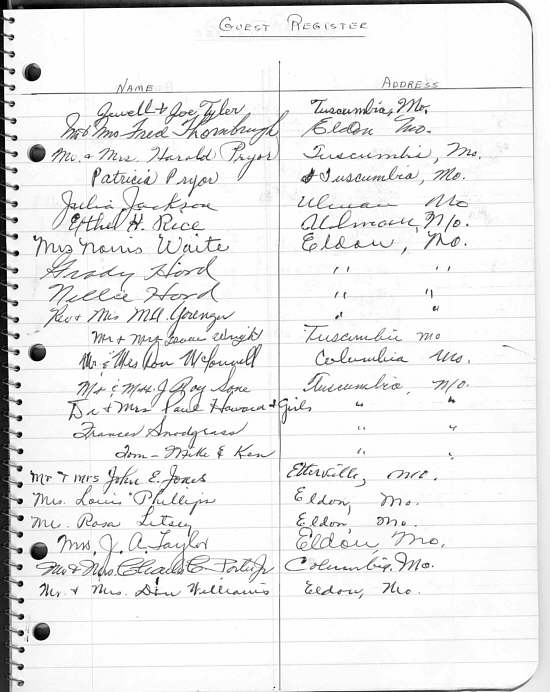 GUEST REGISTER
NAME ADDRESS
Jewell & Joe Tyler Tuscumbia, Mo.
Mr & Mrs Fred Thornbrugh Eldon Mo.
Mr. & Mrs. Harold Pryor Tuscumbia, Mo.
Patricia Pryor Tuscumbia, Mo.
Julia Jackson Ulman Mo
Ethel H. Rice Ulman, Mo.
Mrs Norris Waite Eldon, Mo.
Grady Hord " "
Nellie Hord " "
Rev & Mrs M.A. " "
Mr & Mrs Wright Tuscumbia Mo
Mr. & Mrs Don McConnell Columbia Mo.
Mr & Mrs J Roy Sone Tuscumbia, Mo.
Dr & Mrs Paul Howard & Girls " "
Frances Snodgrass " "
Tom - Mike & Ken " "
Mr & Mrs John E. Jones Etterville, Mo.
Mrs. Louis Phillips Eldon, Mo.
Mr. Rosa Litsey Eldon, Mo.
Mrs. J. A. Taylor Eldon Mo.
Mr & Mrs. Charles C. Porter Jr Columbia, Mo.
Mr. & Mrs. Don Williams Eldon, Mo.